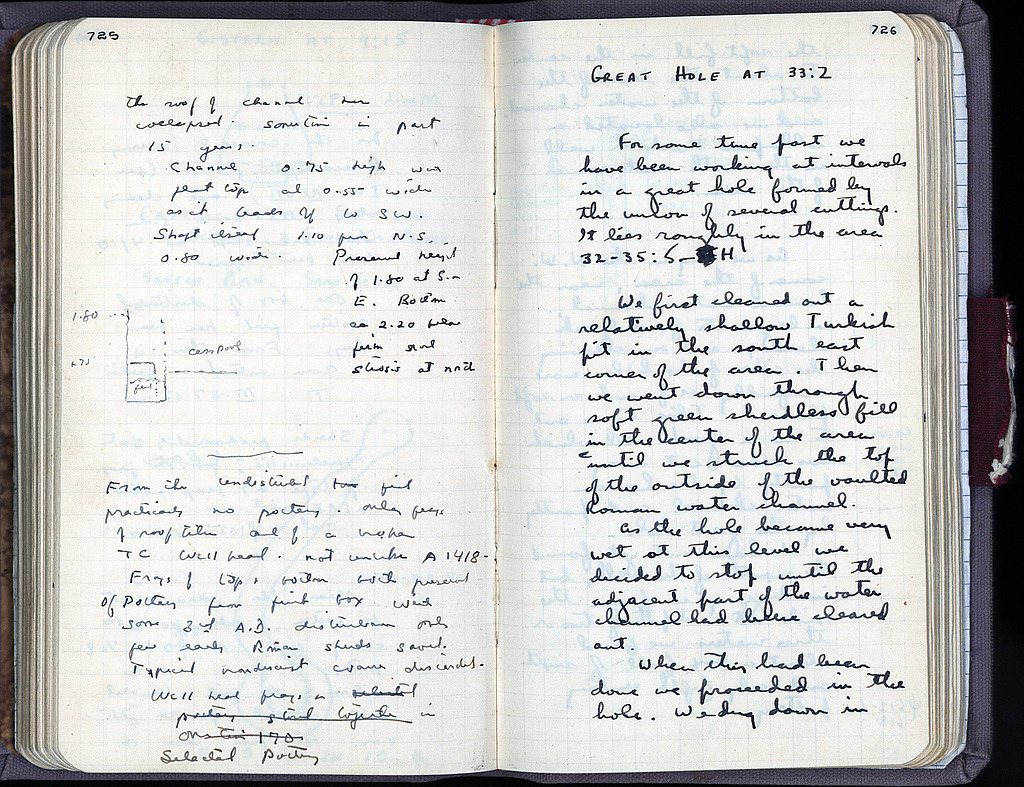 725
the roof of channel has
collapsed. sometime in past
15 years.
Channel 0.75 high with
flat top and 0.55 wide
as it leads off to SW.
Shaft itself 1.10 from N.S.
0.80 wide. Preserved height
of 1.80 at S.
E. Bottom
ca 2.20 below
at north
1.80
cesspool
+75
fill
From the undisturbed fill
practically no pottery. only frags
of roof tiles and of a
TC Well head. not unlike A 1418-
Frags of top & bottom both present
Of Pottery from first box
some 3rd A.D. disturbance only
few early Roman sherds saved.
Typical nondescript coarse discarded.
Well head frags in selected
pottery stored together in
170
Selected Pottery
726
GREAT HOLE AT 33:2
For some time past we
have been working at intervals
in a great hole formed by
the union of several cuttings.
It lies roughly in the area
32-35:
H
We first cleaned out a
relatively shallow Turkish
pit in the south east
corner of the area. Then
we went down through
soft green sherdless fill
in the center of the area
until we struck the top
of the outside of the vaulted
Roman water channel.
As the hole became very
wet at this level we
decided to stop until the
adjacent part of the water
channel had been cleared
out.
When this had been
done we proceeded in the
hole. We dug down in